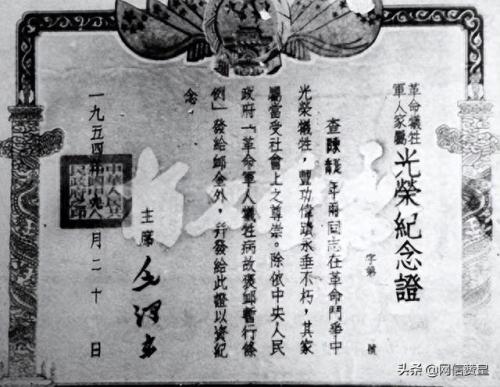 革命犧牲
軍人家屬
光榮紀念證
字第 號
查陳 同志在革命鬥爭中
光榮犧牲，豐功偉績永垂不朽，其家
屬當受社會上之尊崇。除依中央人民
政府「革命軍人犧牲病故褒卹暫行條
例」發給卹金外，并發給此證以資紀
念
主席 毛澤東
一九五四年 月二十日
头条 @网信赞皇